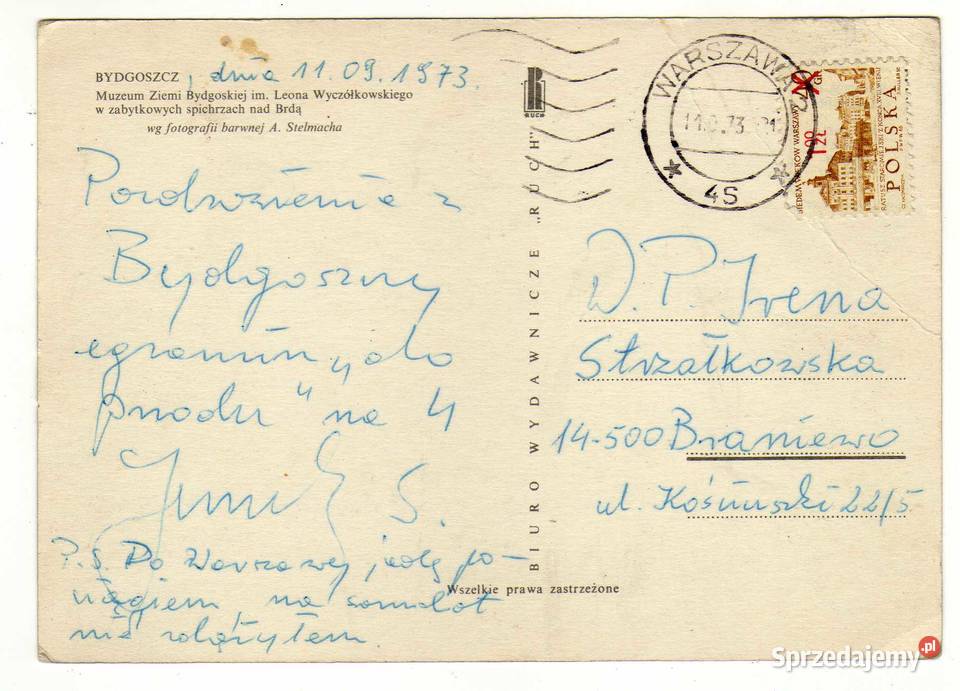 BYDGOSZCZ, dnia 11.09.1973.
Muzeum Ziemi Bydgoskiej im. Leona Wyczółkowskiego
w zabytkowych spichrzach nad Brdą
wg fotografii barwnej A. Stelmacha
Pozdrowienia z
Bydgoszczy
egzamin „do
przodu" na 4
S.
P.S. Do Warszawy jadę po-
ciągiem, na samolot
nie zdążyłem
RUCH
BIURO WYDAWNICZE „RUCH"
Wszelkie prawa zastrzeżone
WARSZAWA
11.9.73
4S
1,00 ZŁ
POLSKA
W. P. Irena
Strzałkowska
14-500 Braniewo
ul. Kościuszki 22/5
Sprzedajemy.pl